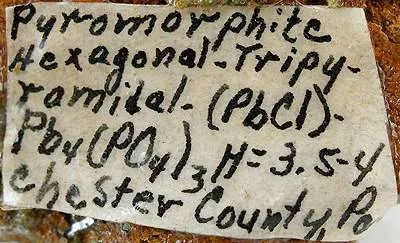 Pyromorphite
Hexagonal-Tripy-
ramidal-(PbCl)-
Pb4(PO4)3 H=3.5-4
Chester County, Pa